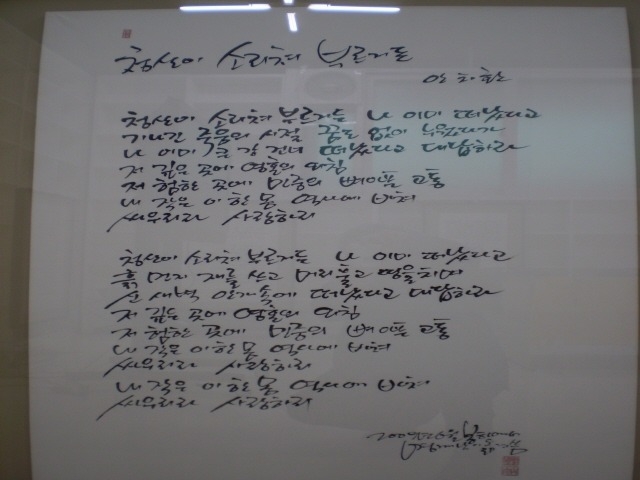 청산이 소리쳐 부르거든
양희환
청산이 소리쳐 부르거든 나 이미 떠났다고
기나긴 죽음의 시절 꿈도 없이 누웠다가
나 이미 큰 강 건너 떠났다고 대답하라
저 깊은 곳에 영혼의 외침
저 험한 곳에 민중의 뼈아픈 고통
내 작은 이 한 몸 역사에 바쳐
싸우리라 사랑하리
청산이 소리쳐 부르거든 나 이미 떠났다고
흙먼지 재를 쓰고 머리 풀고 땅을 치며
신 새벽 안개 속에 떠났다고 대답하라
저 깊은 곳에 영혼의 외침
저 험한 곳에 민중의 뼈아픈 고통
내 작은 이 한 몸 역사에 바쳐
싸우리라 사랑하리
내 작은 이 한 몸 역사에 바쳐
싸우리라 사랑하리